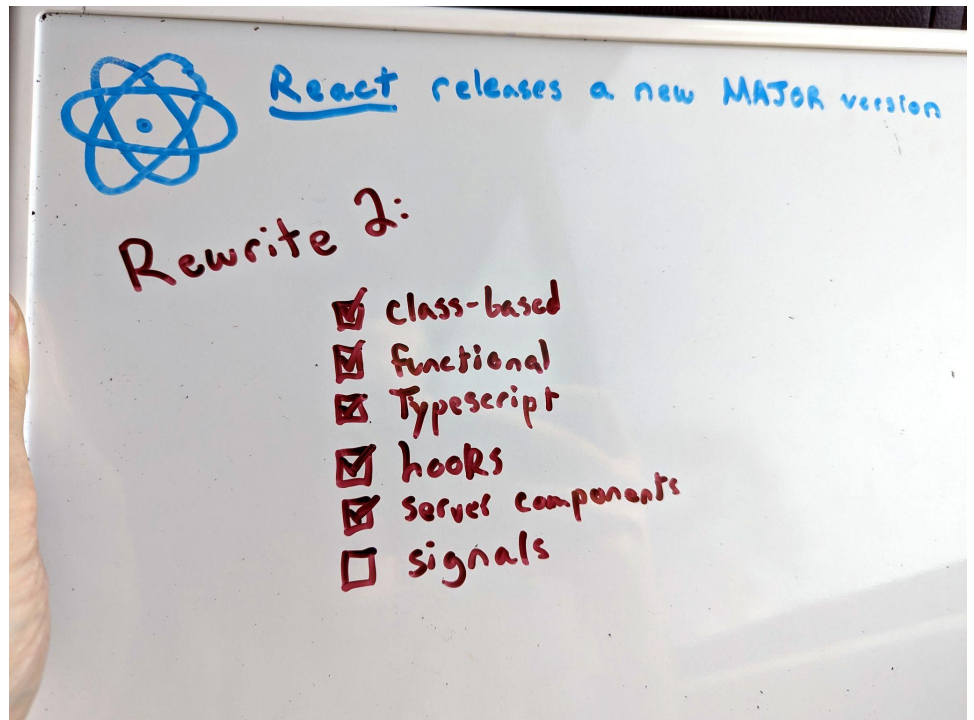 React releases a new MAJOR version
Rewrite 2:
class-based
functional
Typescript
hooks
server components
signals